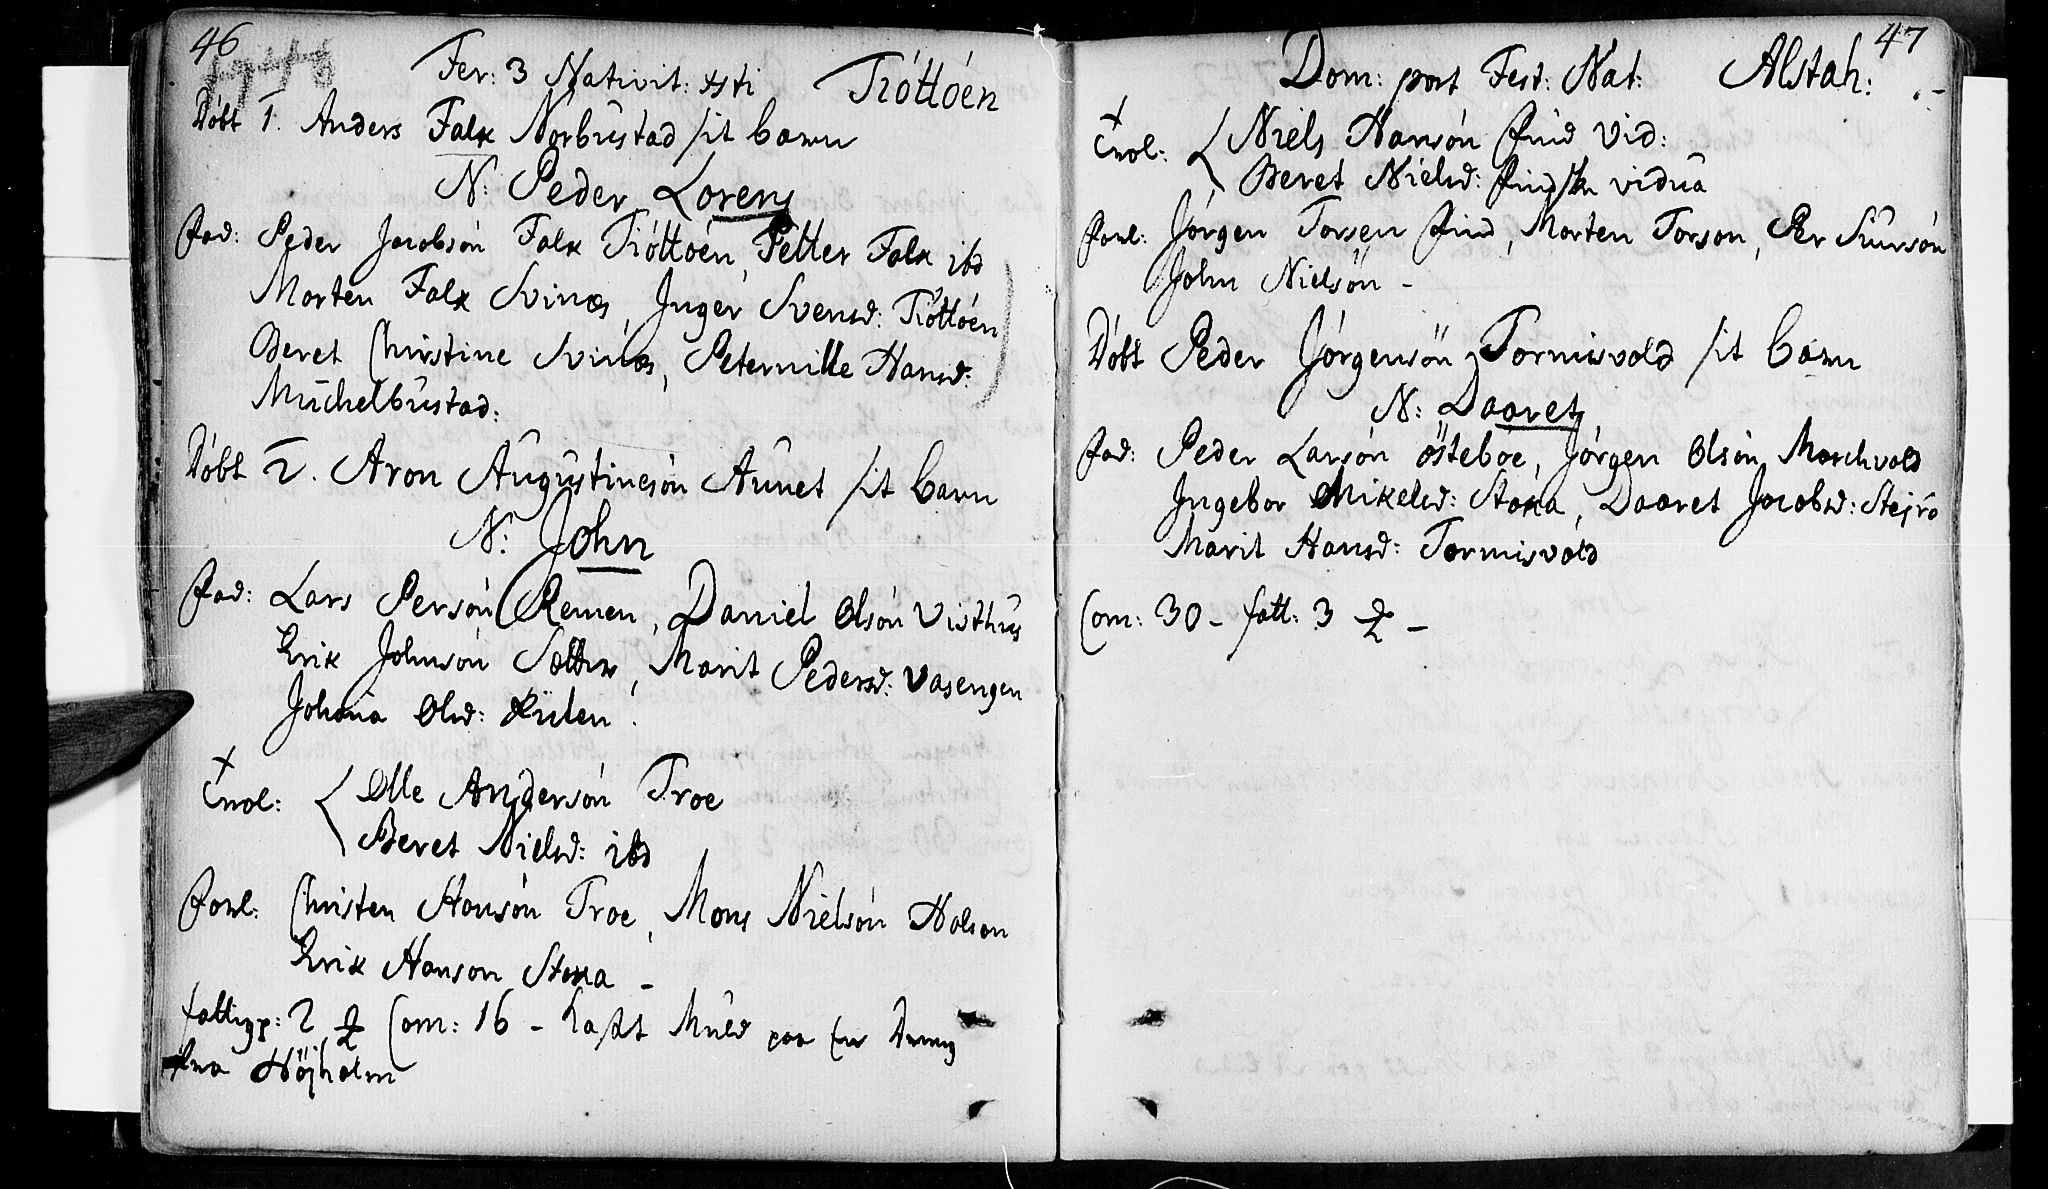 46
Fer: 3 Nativit: xsti Tróttóen
Dóbt 1. Anders Falx Norbustad sit barn
N: Peder Lorens
Fad: Peder Jacobsón Falx Tróttóen, Petter Falx ibd
Morten Falx Svinæs, Inger Svensd: Tróttóen
Beret Christine Svinæs, Peternille Hansd:
Muchelbustad:
Dóbt 2. Aron Augustinesón Aunet sit barn
N: John
Fad: Lars Persón Remen, Daniel Olsón Visthus
Erik Johnsón Sætter, Marit Pedersd: Vasengen
Johana Olsd: Kulen.
Trol: Olle Andersón Troe
Beret Nielsd: ibd
Forl: Christen Hansón Troe, Mons Nielsón Holsen
Erik Hanson Stoxa –
fattigp: 2 Com: 16 – Kast Muld paa en Dreng
fra Höjholm
47
Dom: post Fest: Nat: Alstah:
Trol: Niels Hansón Find Vid:
Beret Nielsd: Find vidua
Forl: Jórgen Torsen Find, Morten Torson, Per Siursón
John Nielsön –
Dóbt Peder Jórgensön Tormisvold sit barn
N: Daaret
Fad: Peder Larsón östebóe, Jórgen Olsón Marchvold
Ingebor Mikelsd: Stoxa, Daaret Jacobsd: Stejrö
Marit Hansd: Tormisvold
Com: 30 – fatt: 3 –